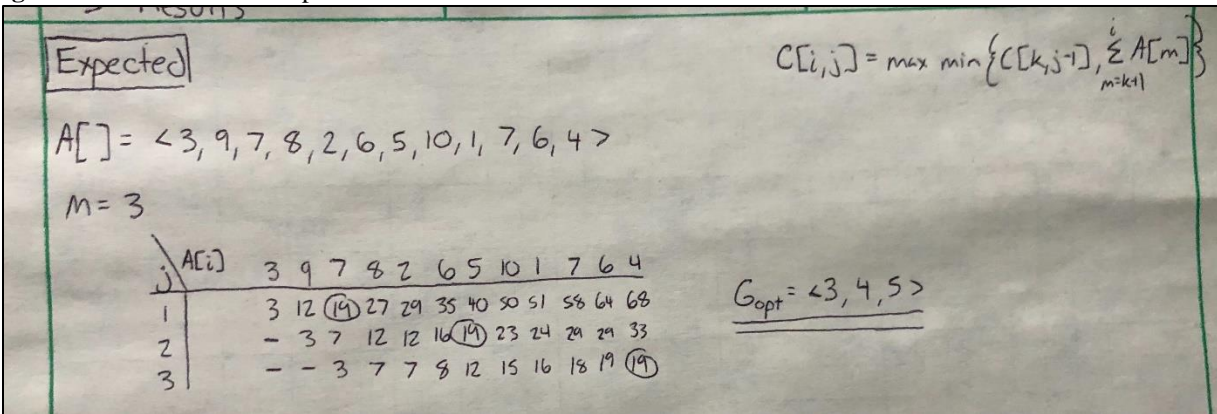 Expected
C[i,j] = max min{C[k,j-1], i Σ m=k+1 A[m]}
A[ ] = <3, 9, 7, 8, 2, 6, 5, 10, 1, 7, 6, 4>
M = 3
j A[i] 3 9 7 8 2 6 5 10 1 7 6 4
1 3 12 19 27 29 35 40 50 51 58 64 68
2 - 3 7 12 12 16 19 23 24 29 29 33
3 - - 3 7 7 8 12 15 16 18 19 19
Gopt = <3, 4, 5>